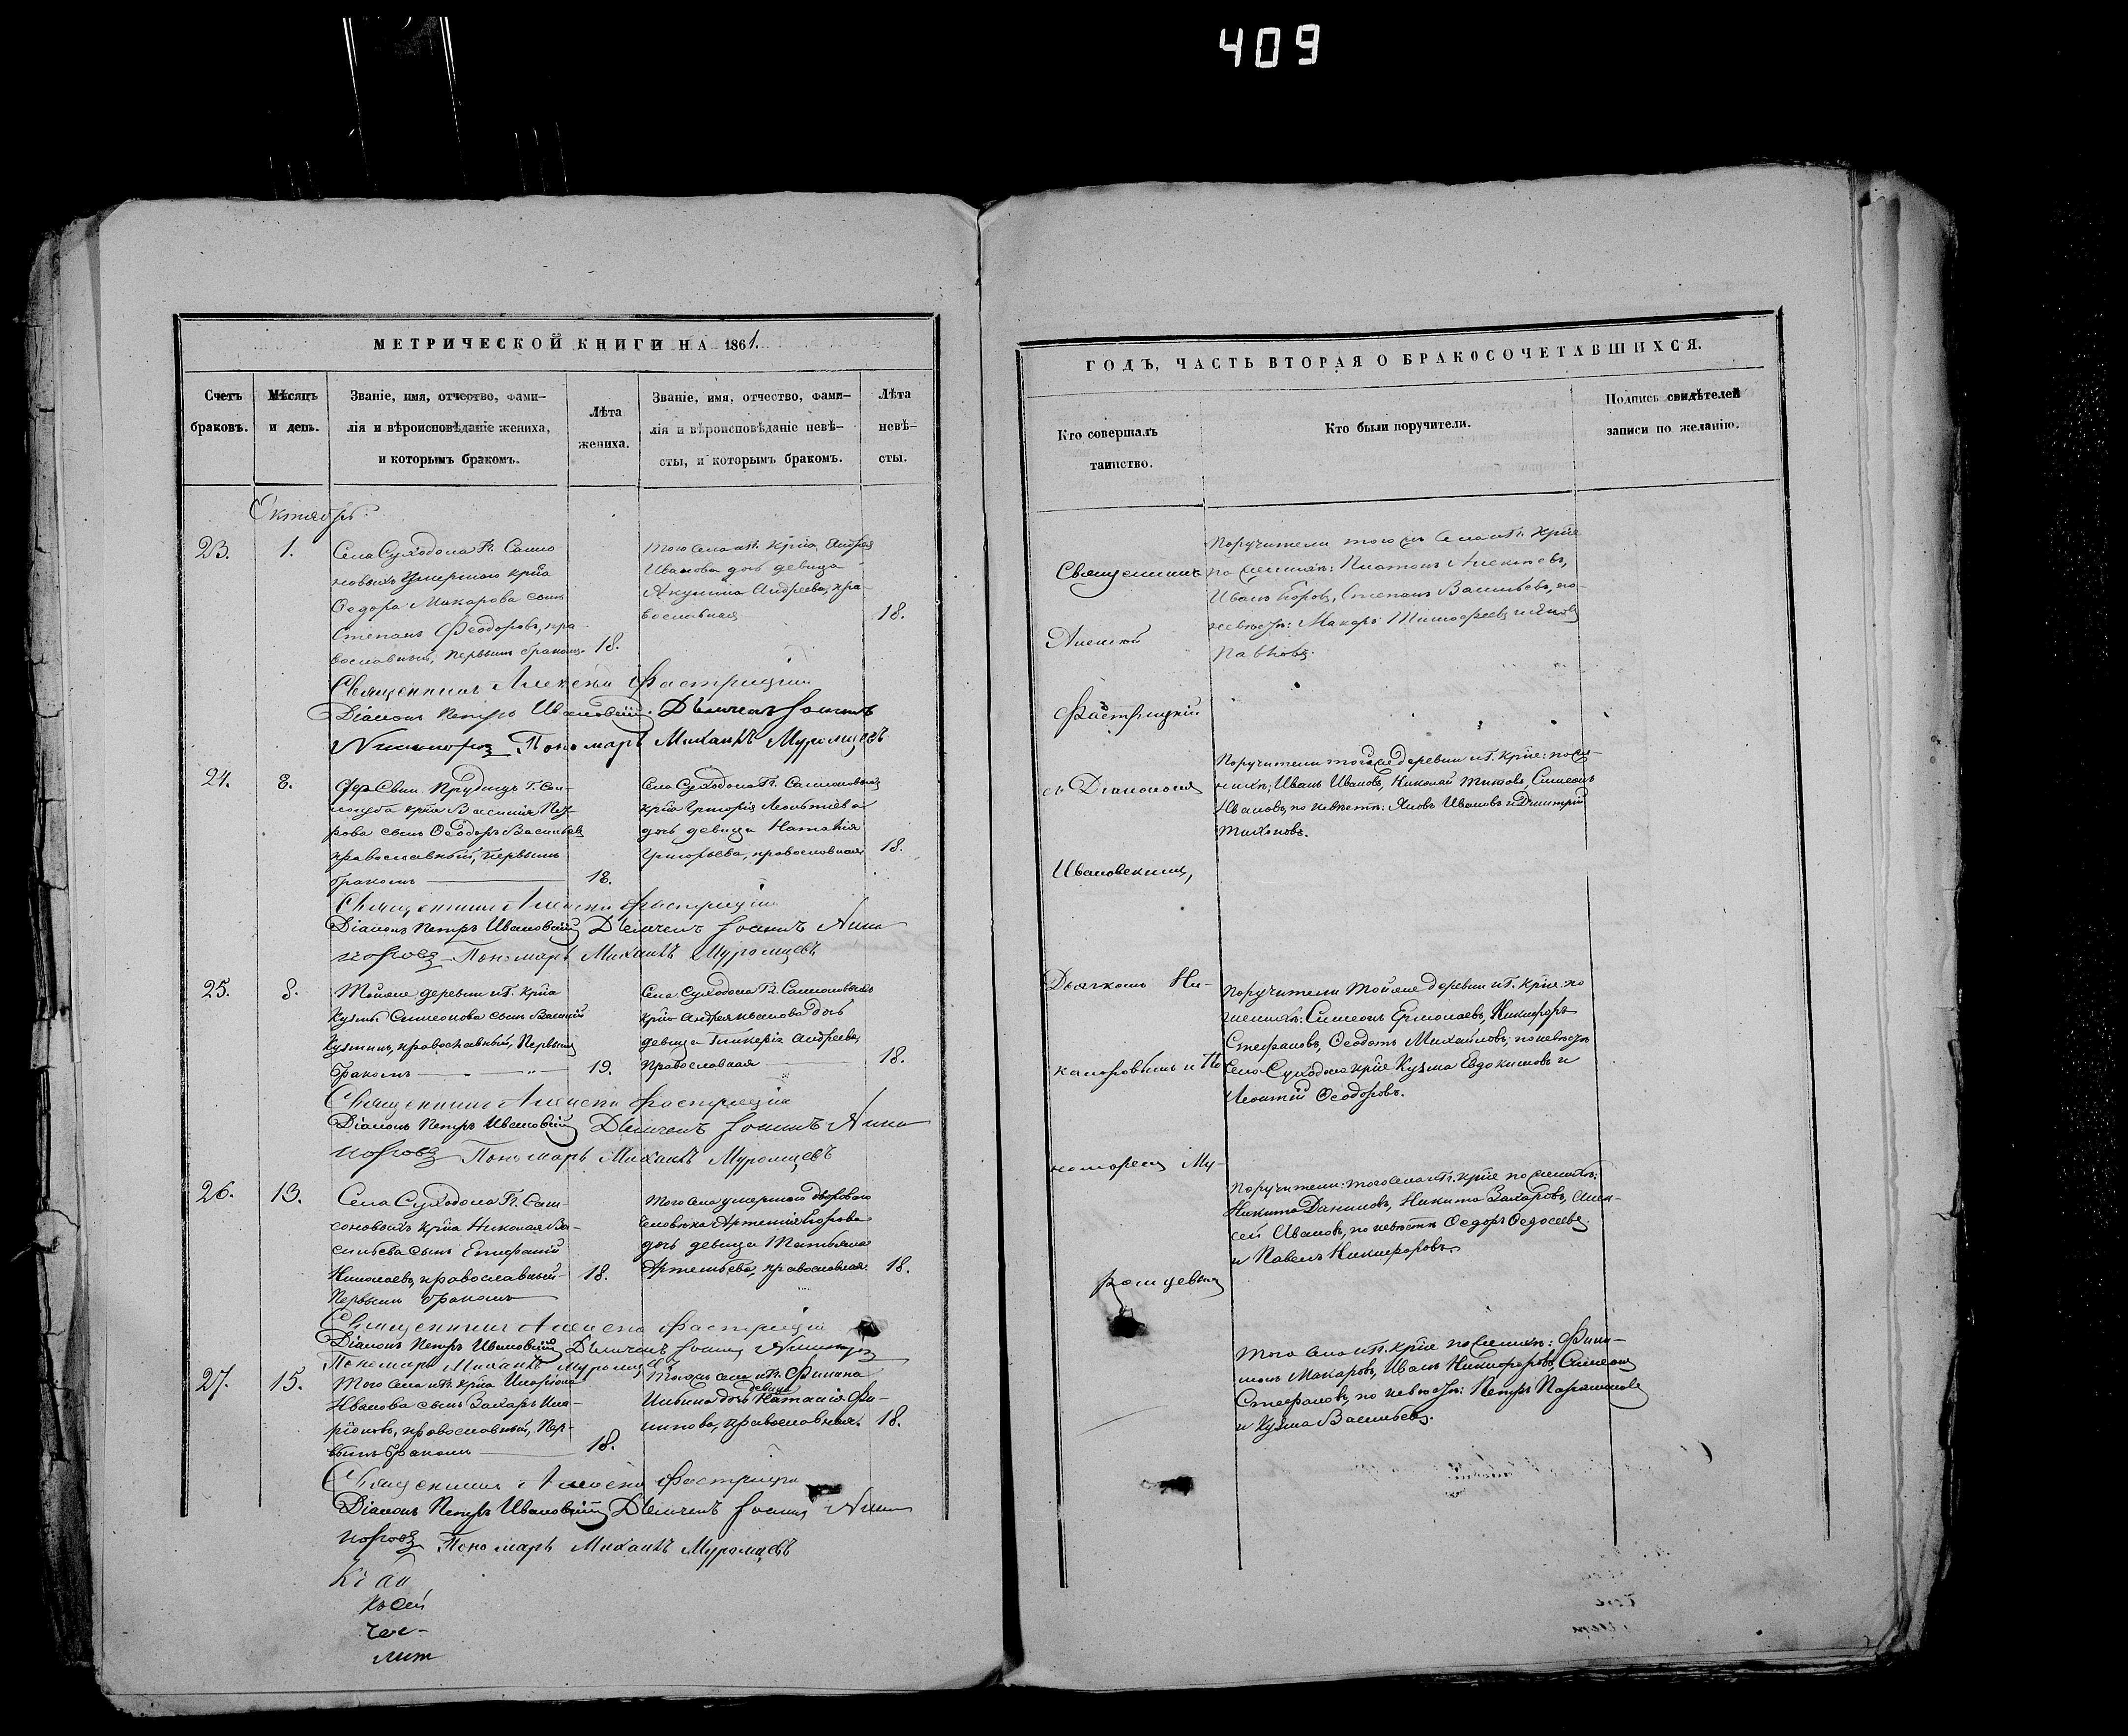 409
МЕТРИЧЕСКОЙ КНИГИ НА 1861.
Счетъ браковъ.
Мѣсяцъ и день.
Званіе, имя, отчество, фами-
лія и вѣроисповѣданіе жениха,
и которымъ бракомъ.
Лѣта жениха.
Званіе, имя, отчество, фами-
лія и вѣроисповѣданіе невѣ-
сты, и которымъ бракомъ.
Лѣта невѣ-
сты.
Октябрь.
23. 1.
Села Суходола Гг. Самсо-
новыхъ умершаго кр̃на
Ѳедора Макарова сынъ
Степанъ Феодоровъ, пра-
вославный, первымъ бракомъ. 18.
Того села и Гг. кр̃на Андрея
Иванова дочь девица
Акулина Андреева, пра-
вославная 18.
Священникъ Алексей Фастрицкій
Діаконъ Петръ Ивановскій. Дьячекъ Іоаннъ
Никаноровъ Пономарь Михаилъ Муромцевъ
24. 8.
кр̃на Василія
сынъ Ѳеодоръ Васильевъ
православный, первымъ
бракомъ 18.
Села Суходола Гг. Самсоновыхъ
кр̃на Григорія Леонтіева
дочь девица Наталія
Григорьева, православная 18.
Священникъ Алексей Фастрицкій
Діаконъ Петръ Ивановскій Дьячекъ Іоаннъ Ника
норовъ Пономарь Михаилъ Муромцевъ
25. 8.
Тойже деревни и Г. кр̃на
Кузмы Симеонова сынъ Василій
Кузминъ, православный, первымъ
бракомъ 19.
Села Суходола Гг. Самсоновыхъ
кр̃на Андрея Иванова дочь
девица Гликерія Андреева,
православная 18.
Священникъ Алексей Фастрицкій
Діаконъ Петръ Ивановскій Дьячекъ Іоаннъ Ника
норовъ Пономарь Михаилъ Муромцевъ
26. 13.
Села Суходола Гг. Сам-
соновыхъ кр̃на Николая Ва-
сильева сынъ Епифаній
Николаевъ, православный 18.
первымъ бракомъ
Того села умершаго двороваго
человѣка Артемія Егорова
дочь девица Татьяна
Артемьева, православная. 18.
Священникъ Алексей Фастрицкій
Діаконъ Петръ Ивановскій Дьячекъ Іоаннъ Никаноровъ
Пономарь Михаилъ Муромцевъ
27. 15.
Того села и Гг. кр̃на Иларіона
Иванова сынъ Захаръ Ила-
ріоновъ, православный, пер-
вымъ бракомъ 18.
Тогожъ села и Гг. Филипа
Ильина дочь девица Наталія Фи-
липова, православная. 18.
Священникъ Алексей Фастрицкій
Діаконъ Петръ Ивановскій Дьячекъ Іоаннъ Ника
норовъ Пономарь Михаилъ Муромцевъ
Къ сей
ГОДЪ, ЧАСТЬ ВТОРАЯ О БРАКОСОЧЕТАВШИХСЯ.
Кто совершалъ
таинство.
Кто были поручители.
Подпись свидѣтелей
записи по желанію.
Священникъ
Алексей
Фастрицкій
съ Діакономъ
Ивановскимъ,
Дьячкомъ Ни-
каноровымъ и По
номаремъ Му-
ромцевымъ
Поручители того же села и Гг. кр̃не
по женихѣ: Платонъ Алексеевъ,
Иванъ Егоровъ, Степанъ Васильевъ, по
невѣстѣ: Макаръ Тимофеевъ и
Павловъ.
Поручители тойже деревни и Г. кр̃не: по же-
нихѣ; Иванъ Ивановъ, Николай Титовъ, Симеонъ
Ивановъ, по невѣстѣ: Яковъ Ивановъ и Дмитрій
Тихоновъ.
Поручители тойже деревни и Г. кр̃не: по
женихѣ: Симеонъ Ермолаевъ, Никифоръ
Стефановъ, Ѳеодотъ Михайловъ; по невѣстѣ
Села Суходола кр̃не Кузма Евдокимовъ и
Леонтій Ѳеодоровъ.
Поручители: того села и Гг. кр̃не по женихѣ:
Никита Даниловъ, Никита Захаровъ, Алек-
сей Ивановъ, по невѣстѣ Ѳедоръ Ѳедосеевъ
и Павелъ Никифоровъ.
Того села и Гг. кр̃не по женихѣ: Фили-
монъ Макаровъ, Иванъ Никифоровъ, Симеонъ
Стефановъ, по невѣстѣ: Петръ
и Кузма Васильевъ.